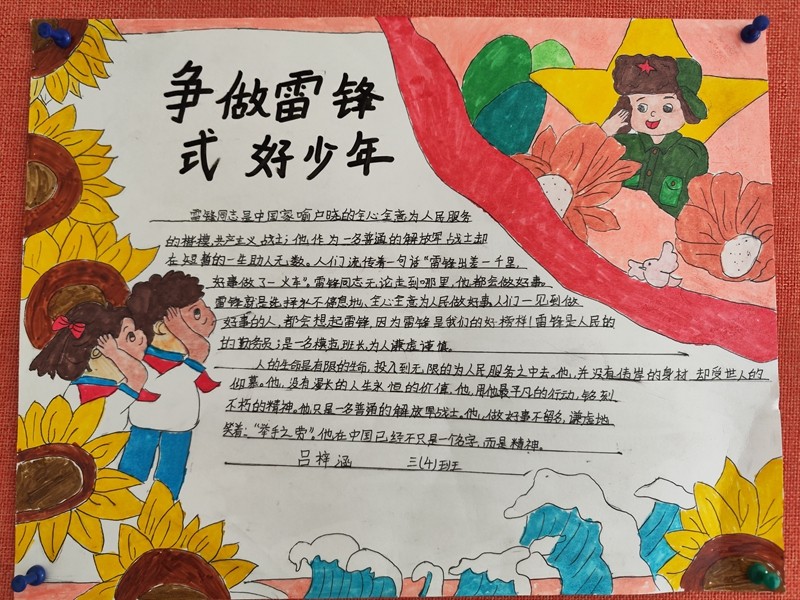 争做雷锋
式好少年
雷锋同志是中国家喻户晓的全心全意为人民服务
的楷模,共产主义战士;他作为一名普通的解放军战士却
在短暂的一生助人无数。人们流传着一句话"雷锋出差一千里,
好事做了一火车"。雷锋同志无论走到哪里,他都会做好事。
雷锋就是这样永不停息地,全心全意为人民做好事。人们一见到做
好事的人,都会想起雷锋,因为雷锋是我们的好榜样!雷锋是人民的
的勤务员;是一名模范班长,为人谦虚谨慎。
人的生命是有限的生命,投入到无限的为人民服务之中去。他,并没有伟岸的身材,却受世人的
仰慕。他,没有漫长的人生永恒的价值,他,用他最平凡的行动,铭刻
不朽的精神。他只是一名普通的解放军战士。他,做好事不留名,谦虚地
笑着:"举手之劳"。他在中国已经不只是一个名字,而是精神。
吕梓涵 三(4)班